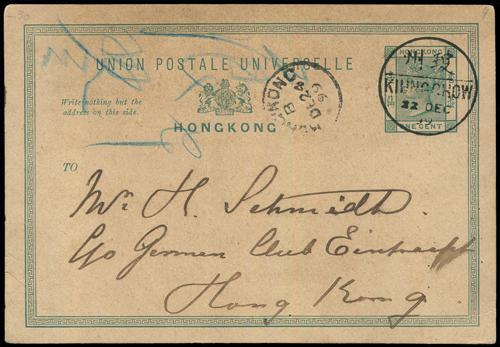 UNION POSTALE UNIVERSELLE
HONGKONG
ONE CENT
Write nothing but the
address on this side.
HONGKONG
HONGKONG
B
DE 24
99
瓊州
KIUNGCHOW
22 DEC
TO
Mr H. Schmidt.
C/o German Club Eintracht
Hong Kong